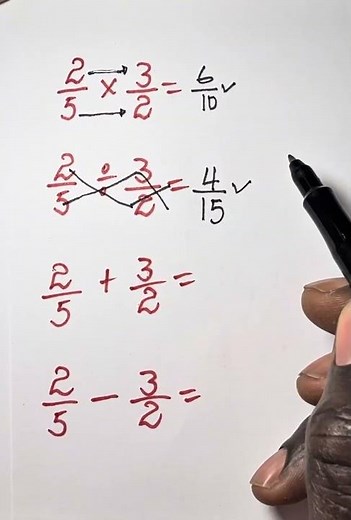 2/5 × 3/2 = 6/10 ✓
2/5 ÷ 3/2 = 4/15 ✓
2/5 + 3/2 =
2/5 − 3/2 =